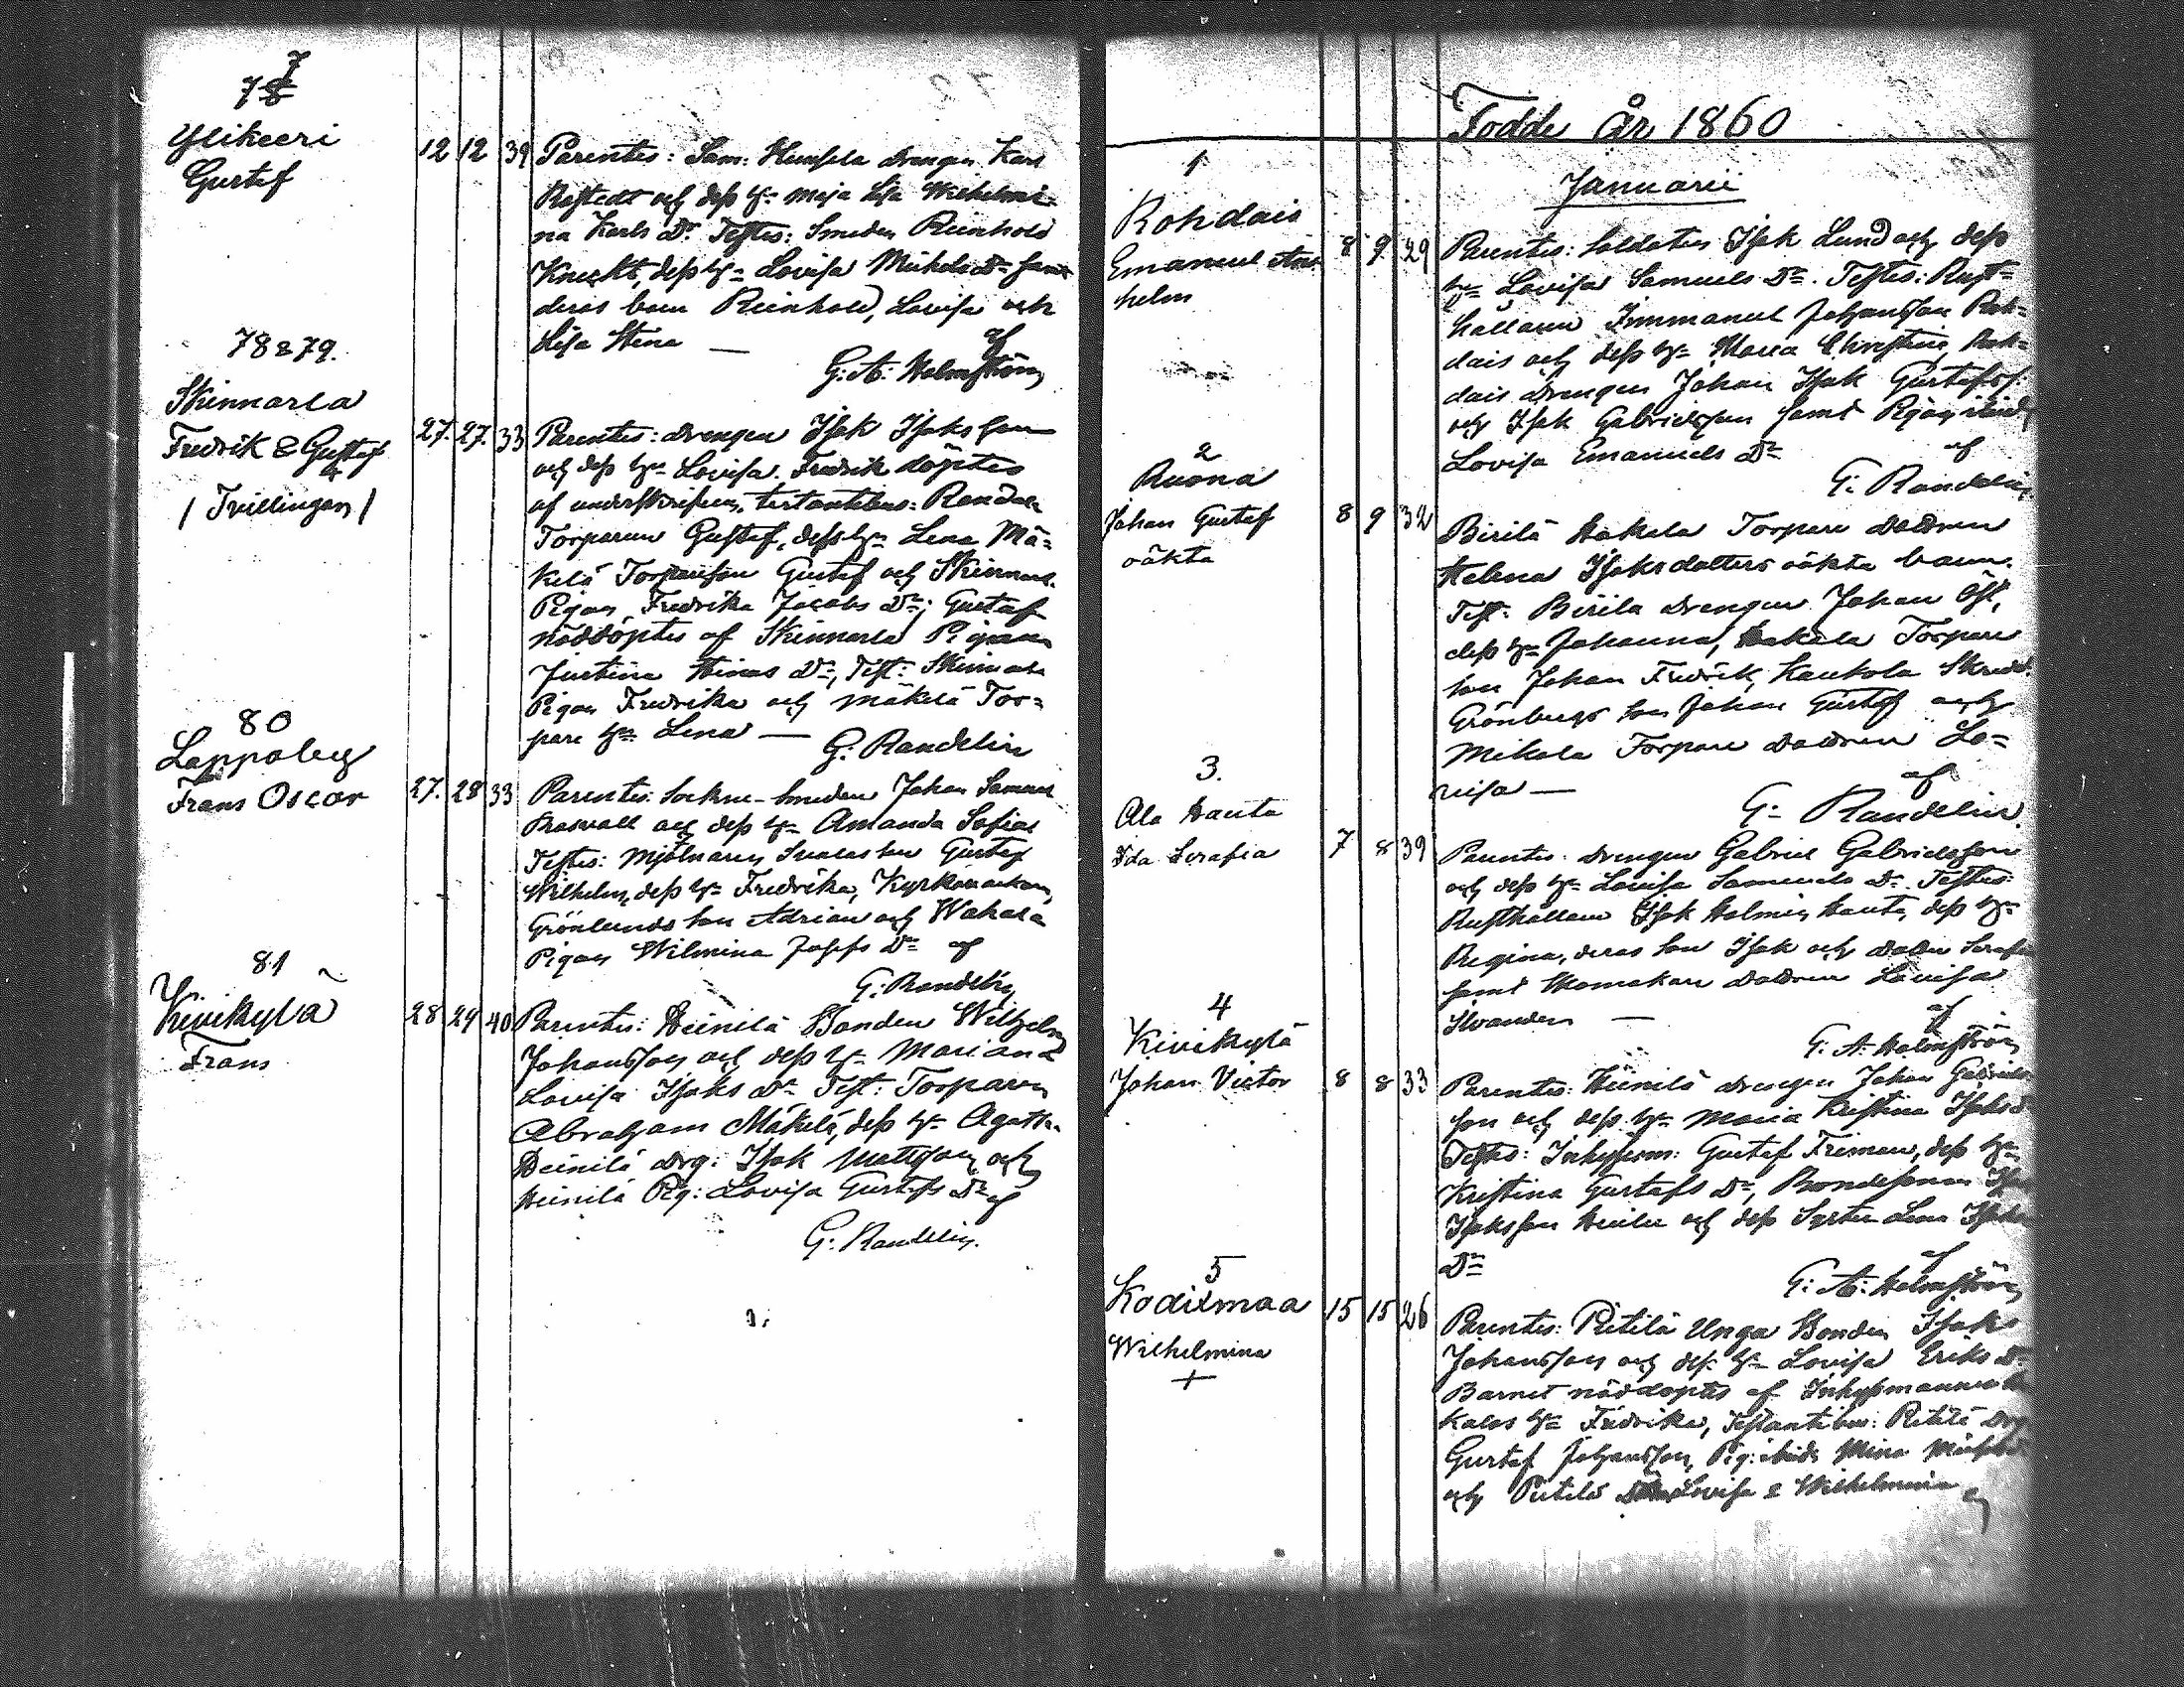 7
78
Ylikeeri
Gustaf
12 12 39 Parentes: Sam: Drengen Karl
och dess h: Maja Lisa Wilhelmi-
na Karls Dr. Testes: Smeden Reinhold
Knecht, dess h: Lovisa Mickels Dr samt
deras barn Reinhold, Lovisa och
Lisa Stina —
af
G: A: Holmström
78 & 79.
Skinnarla
Fredrik & Gustaf
/ Tvillingar /
27. 27. 33 Parentes: drengen Isak Isaksson
och dess h: Lovisa. Fredrik döptes
af underskrifven, testantibus:
Torparen Gustaf, dess h: Lena Mä-
kelä Torparson Gustaf och Skinnarl.
Pigan Fredrika Jacobs Dr; Gustaf
nöddöptes af Skinnarla Pigan
Justina Dr, Test: Skinnarla
Pigan Fredrika och Mäkelä Tor-
pare h: Lena —
G: Randelin
80
Lappoby
Frans Oscar
27. 28 33 Parentes: Sockne-Smeden Johan Samuel
och dess h: Amanda Sofia
Testes: Mjölnaren son Gustaf
Wilhelm, dess h: Fredrika, Kyrkovaktaren
Grönlunds son Adrian och Wahala
Pigan Wilmina Josefs Dr af
G: Randelin
81
Kivikylä
Frans
28 29 40 Parentes: Heinilä Bonden Wilhelm
Johansson och dess h: Mariana
Lovisa Isaks Dr Test: Torparen
Abraham Mäkelä, dess h: Agatha
Heinilä drg: Isak Mattsson och
Heinilä Pig: Lovisa Gustafs Dr af
G: Randelin.
Födde år 1860
Januarii
1
Rohdais
Emanuel Ans-
helm
8 9 29 Parentes: Soldaten Isak Lund och dess
h: Lovisa Samuels Dr. Testes: Rust-
hållaren Immanuel Johansson Roh-
dais och dess h: Maria Christina, Roh-
dais drengen Johan Isak Gustafss:
och Isak Gabrielsson samt Pigan ibid
Lovisa Emanuels Dr
af
G: Randelin
2
Ruona
Johan Gustaf
oäkta
8 9 32 Birilä Hakala Torpare Dottren
Helena Isaksdotters oäkta barn.
Test: Birila drengen Johan Öst,
dess h: Johanna, Hakala Torpare
son Johan Fredrik, Kaukola Skredd.
Grönbergs son Johan Gustaf och
Mikola Torpare Dottren Lo-
visa —
af
G: Randelin.
3.
Ala Hauta
Ida Serafia
7 8 39 Parentes: drengen Gabriel Gabrielsson
och dess h: Lovisa Samuels Dr. Testes:
Rusthållaren Isak Holmin Hauta, dess h:
Regina, deras son Isak och Dottr Serafia
samt Skomakare Dottren Lovisa
Silvander —
af
G: A: Holmström
4
Kivikylä
Johan Victor
8 8 33 Parentes: Heinilä drengen Johan Gabriels-
son och dess h: Maria Kristina Isaks d
Testes: Inhysesm: Gustaf Friman, dess h:
Kristina Gustafs Dr, Bondesonen Isak
Isaksson Heinilä och dess Syster Lena Isaks
Dr
af
G: A: Holmström
5
Kodixmaa
Wilhelmina
+
15 15 26 Parentes: Pietilä Unga Bonden Isak
Johansson och dess h: Lovisa Eriks Dr
Barnet nöddöptes af Inhysmannen
h: Fredrika, Testantibus: Pietilä drg
Gustaf Johansson, Pig: ibid: Mina
och Pietilä Lovisa & Wilhelmina